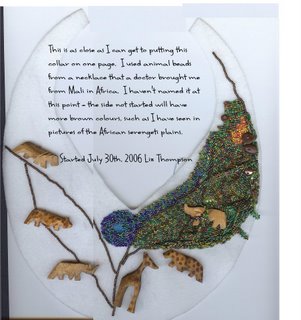 This is as close as I can get to putting this
collar on one page. I used animal beads
from a necklace that a doctor brought me
from Mali in Africa. I haven't named it at
this point - the side not started will have
more brown colours, such as I have seen in
pictures of the African serengeti plains.
Started July 30th, 2006 Liz Thompson